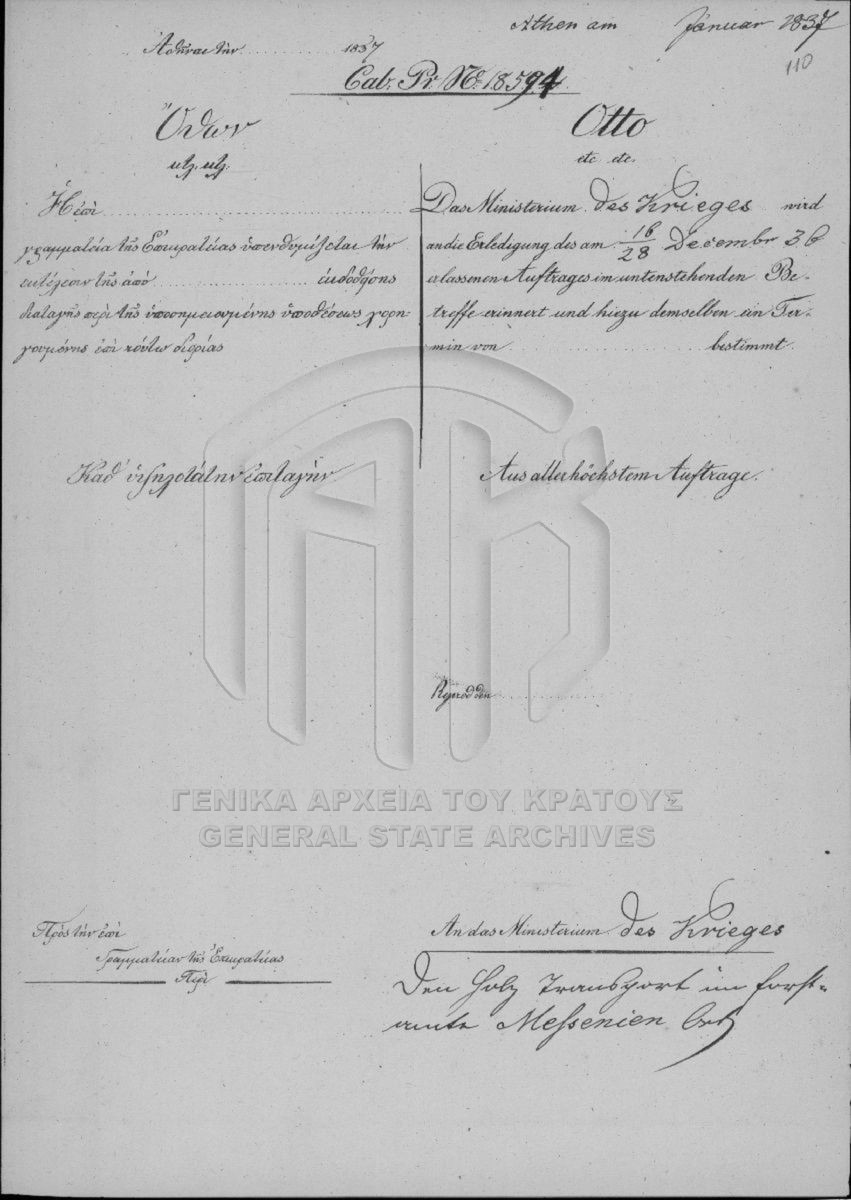 Athen am Januar 1837
Ἀθῆναι τὴν 1837
110
Cab. Pr. No. 18594
Ὄθων
κτλ. κτλ.
Ἡ ἐπὶ
γραμματεία τῆς Ἐπικρατείας ὑπενθυμίζεται τὴν
ἐκτέλεσιν τῆς ἀπὸ ἐκδοθείσης
διαταγῆς περὶ τῆς ὑποσημειουμένης ὑποθέσεως χορη-
γουμένης ἐπὶ τούτῳ διορίας
Καθ' ὑψηλοτάτην ἐπιταγὴν
Otto
etc etc.
Das Ministerium des Krieges wird
an die Erledigung des am 16/28 Decembr 36
erlassenen Auftrages im untenstehenden Be-
treffe erinnert und hiezu demselben ein Ter-
min von bestimmt.
Aus allerhöchstem Auftrage.
ΓΕΝΙΚΑ ΑΡΧΕΙΑ ΤΟΥ ΚΡΑΤΟΥΣ
GENERAL STATE ARCHIVES
Πρὸς τὴν ἐπὶ
Γραμματείαν τῆς Ἐπικρατείας
Περὶ
An das Ministerium des Krieges
Den Holz Transport im Forst-
amte Messenien